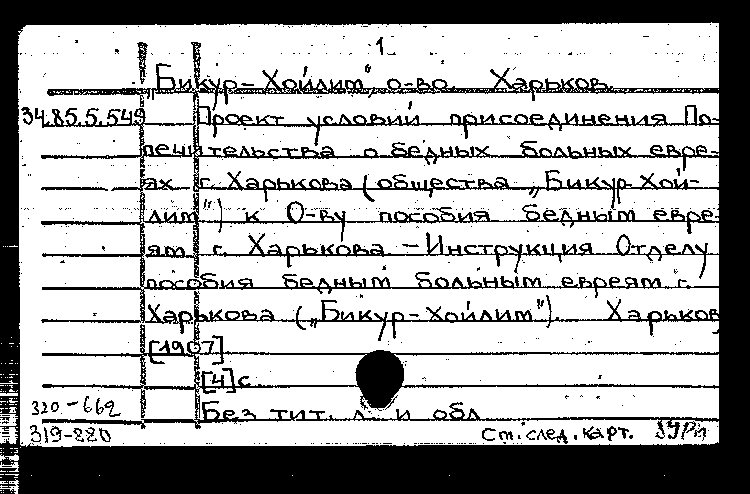 1
„Бикур-Хойлим", о-во. Харьков.
34.85.5.549 Проект условий присоединения По-
печительства о бедных больных евре-
ях г. Харькова (общества „Бикур-Хой-
лим") к О-ву пособия бедным евре-
ям г. Харькова. - Инструкция Отделу
пособия бедным больным евреям г.
Харькова („Бикур-Хойлим"). Харьков
[1907]
[4] с.
Без тит. л. и обл.
320-662
319-880 См. след. карт.